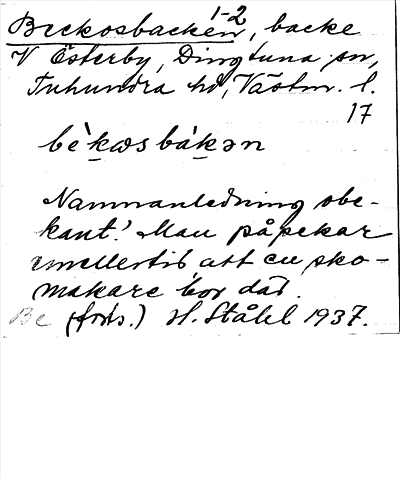 1-2
Beckosbacken, backe
V Österby, Dingtuna sn,
Tuhundra hd, Västm. l.
17
bè̀kωsbákən
Namnanledning obe-
kant. Man påpekar
emellertid att en sko-
makare bor där.
Be (forts.) H. Ståhl 1937.